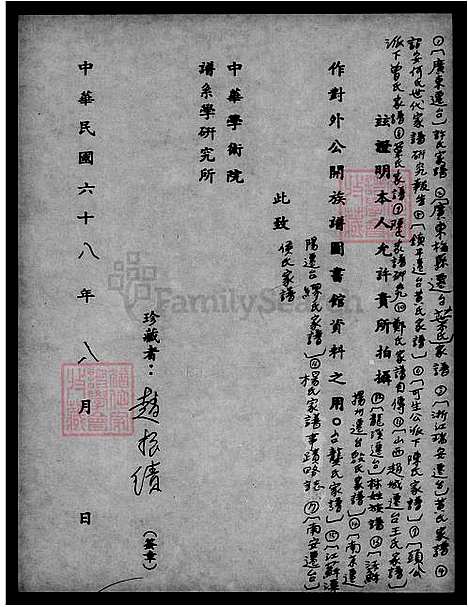 ①〔廣東遷台〕許氏家譜 ②〔廣東梅縣遷台〕葉氏家譜 ③〔浙江瑞安遷台〕黃氏家譜 ④
詔安何氏世代家譜研究報告 ⑤〔鎮平遷台黃氏家譜〕⑥〔可生公派下陳氏家譜〕⑦〔顯公
派下曾氏家譜 ⑧葉氏家譜 ⑨陳氏家譜研究 ⑩鄭氏家譜自傳 ⑪〔山西趙城遷台王氏家譜〕
茲證明本人允許貴所拍攝
⑫〔龍溪遷台〕林姓族譜 ⑬〔江蘇
揚州遷台殷氏家譜〕⑭〔南京遷
作對外公開族譜圖書館資料之用。
台龔氏家譜〕⑮〔江蘇溧
陽遷台繆氏家譜〕⑯楊氏家譜事蹟略誌 ⑰〔南安遷台〕
侯氏家譜
此致
中華學術院
譜系學研究所
珍藏者：趙振績
（簽章）
中華民國六十八年 八 月 日
FamilySearch